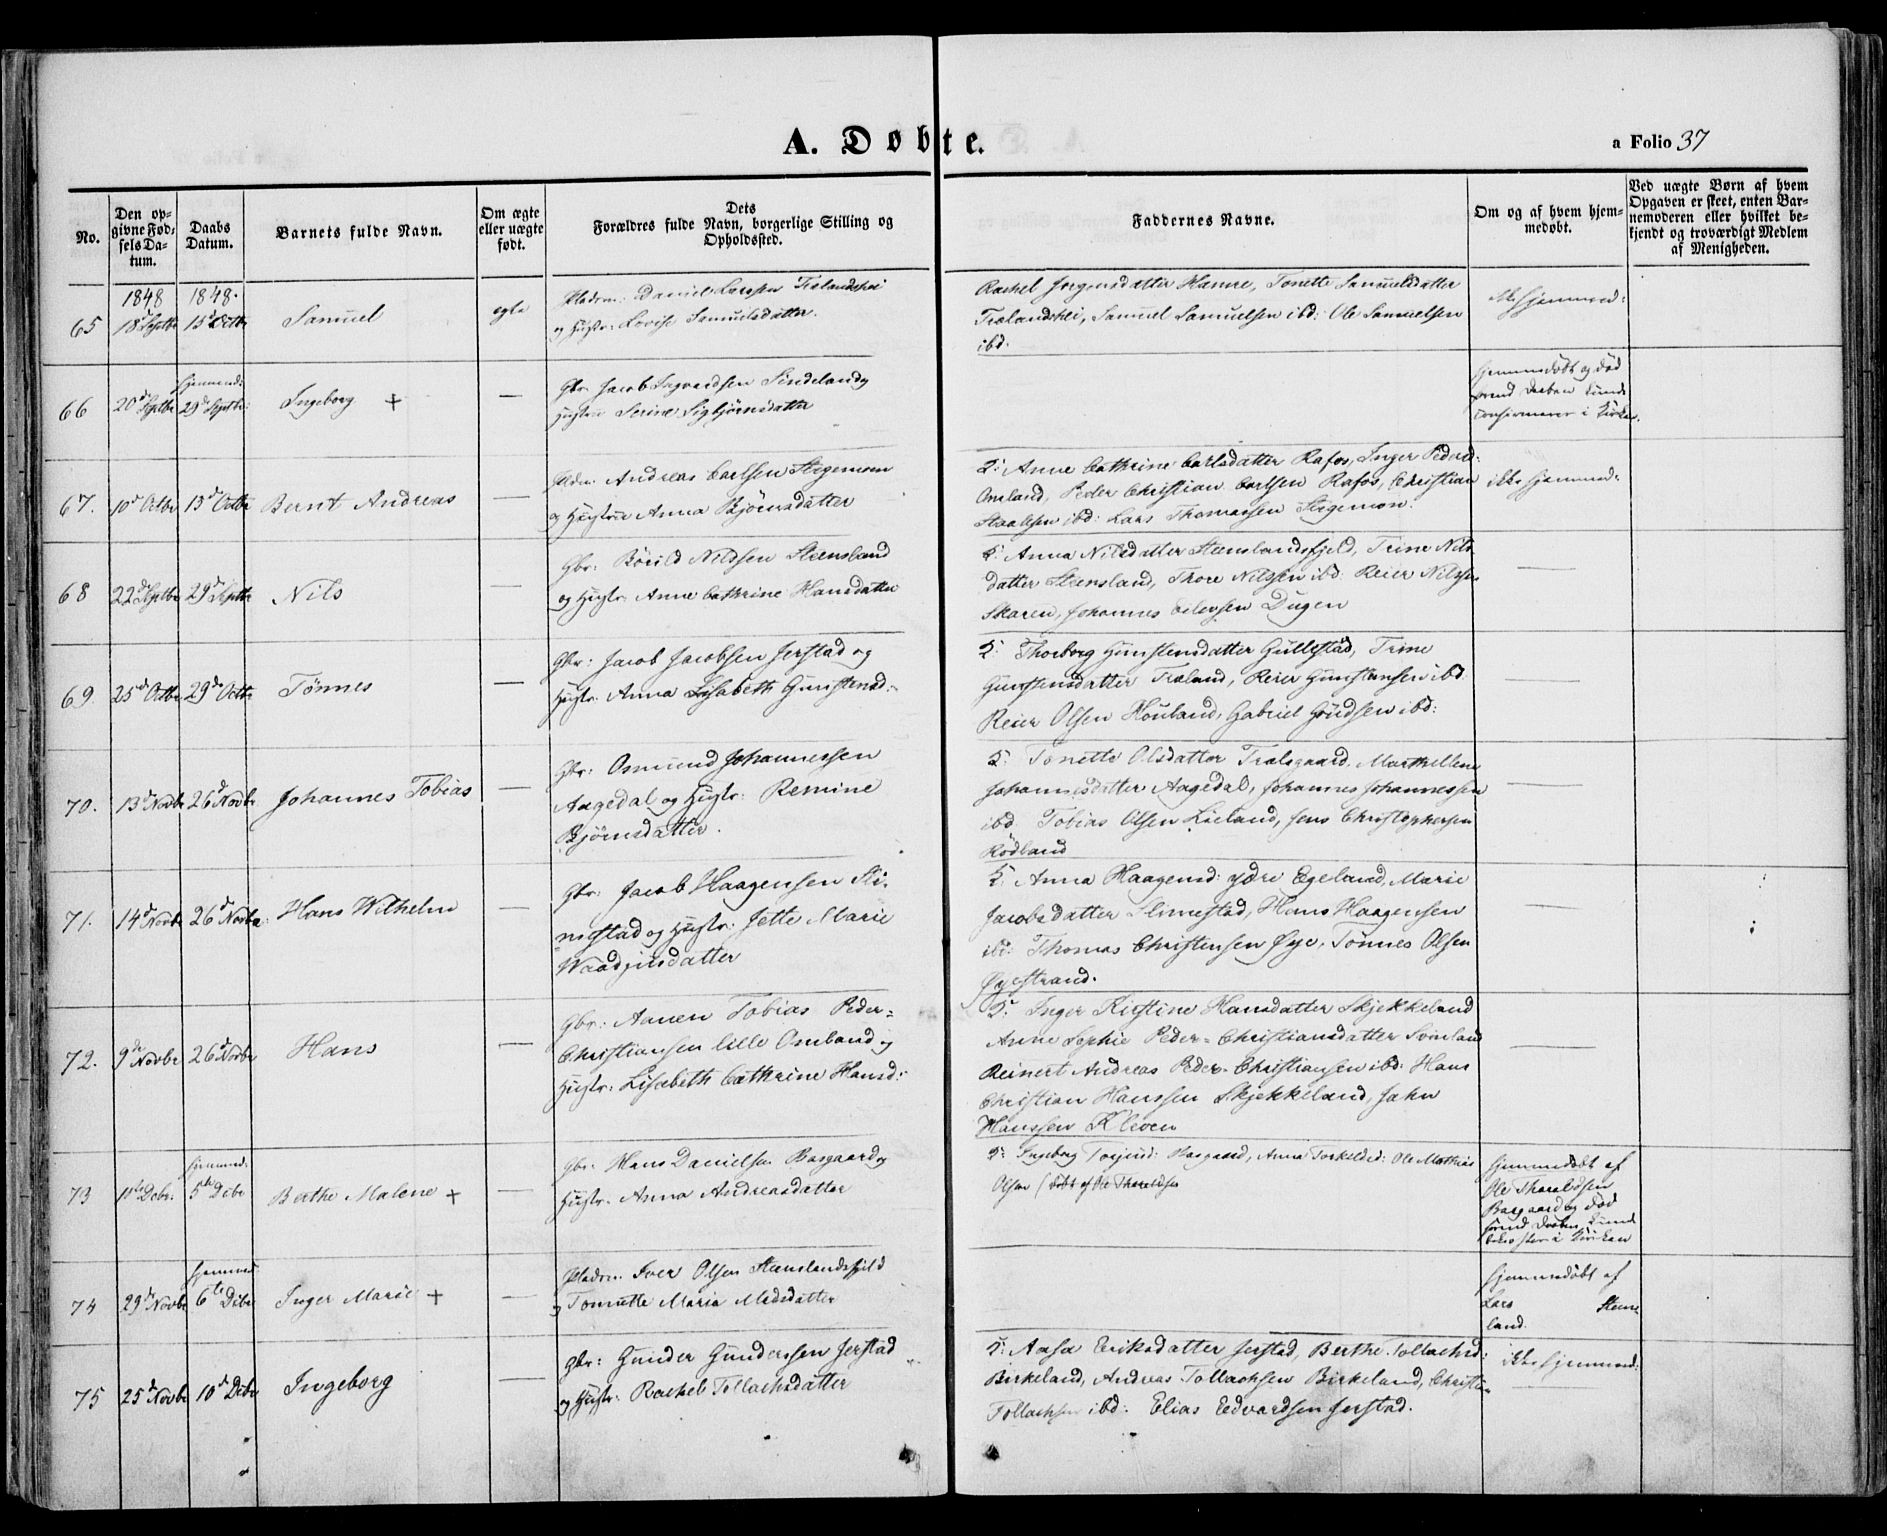 A. Døbte.
a Folio 37
No.
Den op-
givne Fød-
sels Da-
tum.
Daabs
Datum.
Barnets fulde Navn.
Om ægte
eller uægte
født.
Dets
Forældres fulde Navn, borgerlige Stilling og
Opholdssted.
Faddernes Navne.
Om og af hvem hjem-
medøbt.
Ved uægte Børn af hvem
Opgaven er skeet, enten Bar-
nemoderen eller hvilket be-
kjendt og troværdigt Medlem
af Menigheden.
1848 1848.
65 18d Septbr 15d Octbr Samuel egte
Pladsm: Daniel Larssen Trælandshei
og Hustr: Lovise Samuelsdatter.
Rachel Jørgensdatter Hamre, Tonette Samuelsdatter
Trælandshei, Samuel Samuelsen ibd: Ole Samuelsen
ibd.
ikke hjemmed:
66 20d Septbr hjemmed:
29d Septbr: Ingeborg + —
Gbr Jacob Ingvardsen Sindeland og
Hustru Serine Sigbjørnsdatter
hjemmedøbt og død
forend Daaben kunde
confirmeres i Kirken.
67. 10d Octbr 15d Octbr Bernt Andreas —
Pladsm: Andreas Carlsen Stegemoen
og Hustru Anna Bjørnsdatter
F: Anne Cathrine Carlsdatter Rafos, Inger Pedersd:
Omland, Peder Christian Carlsen Rafos, Christian
Staalesen ibd: Lars Thomassen Stegemoen.
ikke hjemmed:
68 22d Septbr 29d Septbr Nils —
Gbr: Børild Nilssen Steensland
og Hustr: Anne Cathrine Hansdatter
F: Anna Nilsdatter Steenslandsfjeld, Trine Nils
datter Steensland, Thore Nilssen ibd: Reier Nilssen
Skaren, Johannes Eilevsen Dugen
—
69 25d Octbr 29de Octbr Tønnes —
Gbr: Jacob Jacobsen Jerstad og
Hustr: Anna Lisabeth Gunstensd:
F: Thorborg Gunstensdatter Gullestad, Trine
Gunstensdatter Træland, Reier Gunstensen ibd.
Reier Olsen Houland, Gabriel Gundsen ibd:
—
70. 13d Novbr 26d Novbr Johannes Tobias —
Gbr: Osmund Johannessen
Aagedal og Hustr: Remine
Bjørnsdatter.
F: Tonette Olsdatter Trælsgaard, Marthellene
Johannesdatter Aagedal, Johannes Johannessen
ibd. Tobias Olsen Lieland, Jens Christophersen
Rødland
—
71. 14d Novbr 26d Novbr: Hans Wilhelm —
Gbr: Jacob Haagensen Sli-
mestad og Hustr: Jette Marie
Waadjusdatter
F: Anna Haagensd: ydre Egeland, Marie
Jacobsdatter Slimestad, Hans Haagensen
ibd: Thomas Christensen Øye, Tønnes Olsen
Øyestrand.
—
72. 9de Novbr 26d Novbr Hans —
Gbr: Aanen Tobias Peder-
Christiansen lille Omland og
Hustr: Lisabeth Cathrine Hansd:
F: Inger Kistine Hansdatter Skjekkeland
Anne Sophie Peder-Christiansdatter Lomland
Reinert Andreas Peder-Christiansen ibd: Hans
Christian Hanssen Skjekkeland, Jahn
Hanssen Kleven
—
73 1ste Decbr: hjemmed:
5te Dcbr Berthe Malene + —
Gbr: Hans Danielsen Rasgaard og
Hustr. Anna Andreasdatter
F: Ingeborg Torjusd: Rasgaard, Anna Torkeldsd: Ole Mathias
Olsen (døbt af Ole Tharaldsen
hjemmedøbt af
Ole Tharaldsen
Rasgaard og død
forend Daaben kunde
i Kirken
74 29d Novbr hjemmed
6te Dcbr Inger Marie + —
Pladsm. Iver Olsen Steenslandsfjeld
og Tonnette Maria Madsdatter
hjemmedøbt af
Lars Steens
land.
75 25d Novbr 10d Dcbr Ingeborg —
Gbr: Gunder Gunderssen Jerstad
og Hustr: Rachel Tollachsdatter
F: Aasa Eriksdatter Jerstad, Berthe Tollachsd:
Birkeland, Andreas Tollachsen Birkeland, Christen
Tollachsen ibd: Elias Edvardsen Jerstad.
ikke hjemmed: